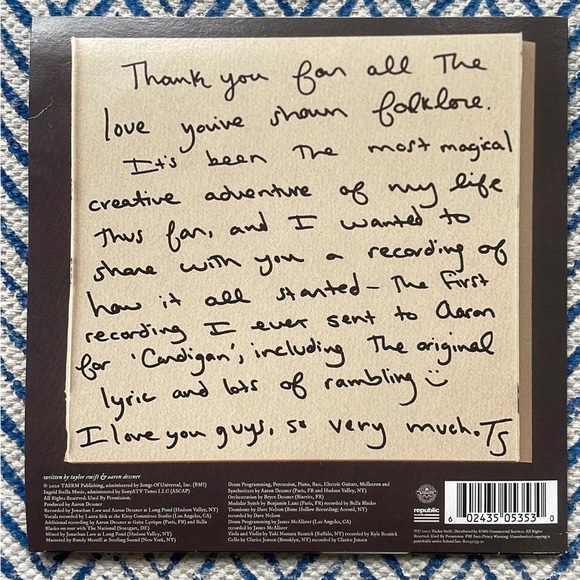 Thank you for all the
love you've shown folklore.
It's been the most magical
creative adventure of my life
thus far, and I wanted to
share with you a recording of
how it all started - the first
recording I ever sent to Aaron
for 'Cardigan', including the original
lyric and lots of rambling ☺
I love you guys, so very much. TS
written by taylor swift & aaron dessner
© 2020 TASRM Publishing, administered by Songs Of Universal, Inc. (BMI)
Ingrid Stella Music, administered by Sony/ATV Tunes LLC (ASCAP)
All Rights Reserved. Used By Permission.
Produced by Aaron Dessner
Recorded by Jonathan Low and Aaron Dessner at Long Pond (Hudson Valley, NY)
Vocals recorded by Laura Sisk at the Kitty Committee Studio (Los Angeles, CA)
Additional recording by Aaron Dessner at Gaite Lyrique (Paris, FR) and Bella
Blasko on tour with The National (Stuttgart, DE)
Mixed by Jonathan Low at Long Pond (Hudson Valley, NY)
Mastered by Randy Merrill at Sterling Sound (New York, NY)
Drum Programming, Percussion, Piano, Bass, Electric Guitars, Mellotron and
Synthesizers by Aaron Dessner (Paris, FR and Hudson Valley, NY)
Orchestration by Bryce Dessner (Biarritz, FR)
Modular Synth by Benjamin Lanz (Paris, FR), recorded by Bella Blasko
Trombone by Dave Nelson (Bone Hollow Recording; Accord, NY)
recorded by Dave Nelson
Drum Programming by James McAlister (Los Angeles, CA)
recorded by James McAlister
Viola and Violin by Yuki Numata Resnick (Buffalo, NY) recorded by Kyle Resnick
Cello by Clarice Jensen (Brooklyn, NY) recorded by Clarice Jensen
republic
6 02435 05353 0